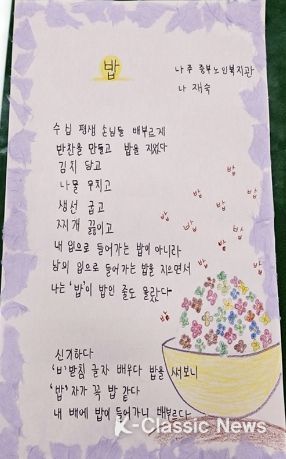 밥
나주 중부노인복지관
나 재숙
수십 평생 손님들 배부르게
반찬을 만들고 밥을 지었다
김치 담고
나물 무치고
생선 굽고
찌개 끓이고
내 입으로 들어가는 밥이 아니라
남의 입으로 들어가는 밥을 지으면서
나는 '밥'이 밥인 줄도 몰랐다
신기하다
'ㅂ'받침 글자 배우다 밥을 써보니
'밥'자가 꼭 밥 같다
내 배에 밥이 들어가니 배부르다
밥
밥
밥
밥
밥
밥
밥
밥
밥
밥
K-Classic News